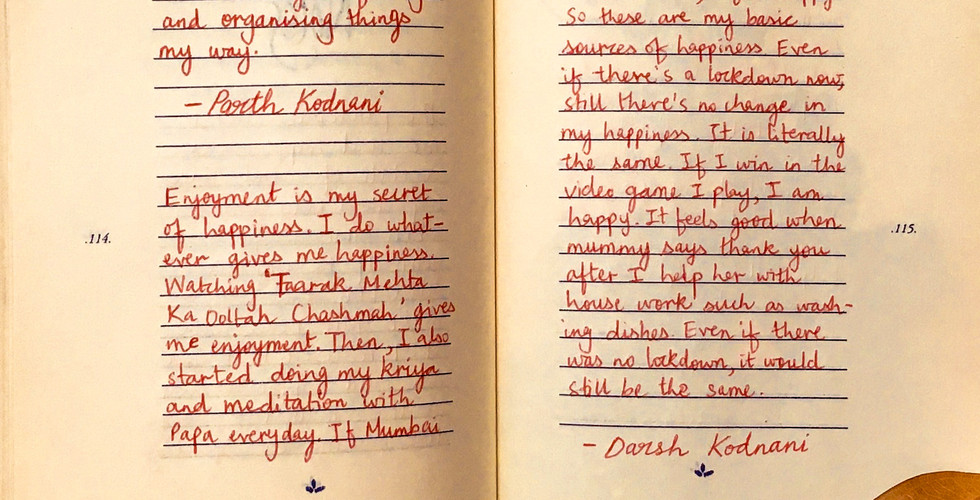 and organising things
my way.
- Parth Kodnani
Enjoyment is my secret
of happiness. I do what-
ever gives me happiness.
Watching 'Taarak Mehta
Ka Ooltah Chashmah' gives
me enjoyment. Then, I also
started doing my kriya
and meditation with
Papa everyday. If Mumbai
.114.
So these are my basic
sources of happiness. Even
if there's a lockdown now,
still there's no change in
my happiness. It is literally
the same. If I win in the
video game I play, I am
happy. It feels good when
mummy says thank you
after I help her with
house work such as wash-
ing dishes. Even if there
was no lockdown, it would
still be the same.
- Darsh Kodnani
.115.